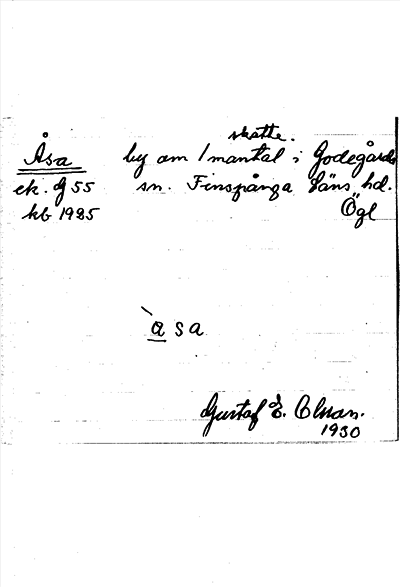 skatte.
Åsa by om 1 mantal i Godegårds
ek. G 55 sn. Finspånga läns hd.
kb 1925 Ögl
àsa
Gustaf E. Olman.
1930